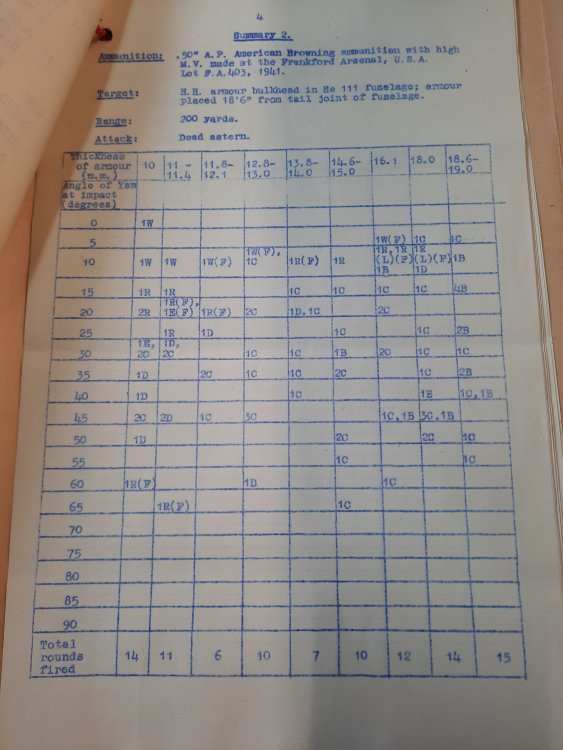 4
Summary 2.
Ammunition: .50" A.P. American Browning ammunition with high
M.V. made at the Frankford Arsenal, U.S.A.
Lot F.A.403, 1941.
Target: H.H. armour bulkhead in He 111 fuselage; armour
placed 18'6" from tail joint of fuselage.
Range: 200 yards.
Attack: Dead astern.
Thickness of armour (m.m.) 10 11 - 11.4 11.8- 12.1 12.8- 13.0 13.8- 14.0 14.6- 15.0 16.1 18.0 18.6- 19.0
Angle of Yaw at impact (degrees)
0 1W
5 1W(F) 1C 1C
10 1W 1W 1W(F) 1W(F), 1C 1R(F) 1R 1R, 1R (L)(F) 1B 1R (L)(F) 1D 1B
15 1R 1R 1C 1C 1C 1C 4B
20 2R 1R(F), 1E(F) 1R(F) 2C 1D,1C 2C
25 1R 1D 1C 1C 2B
30 1E, 2C 1D, 2C 1C 1C 1B 2C 1C 1C
35 1D 2C 1C 1C 2C 1C 2B
40 1D 1C 1E 1C,1B
45 2C 2D 1C 3C 1C,1B 3C,1B
50 1D 2C 2C 1C
55 1C 1C
60 1R(F) 1D 1C
65 1R(F) 1C
70
75
80
85
90
Total rounds fired 14 11 6 10 7 10 12 14 15